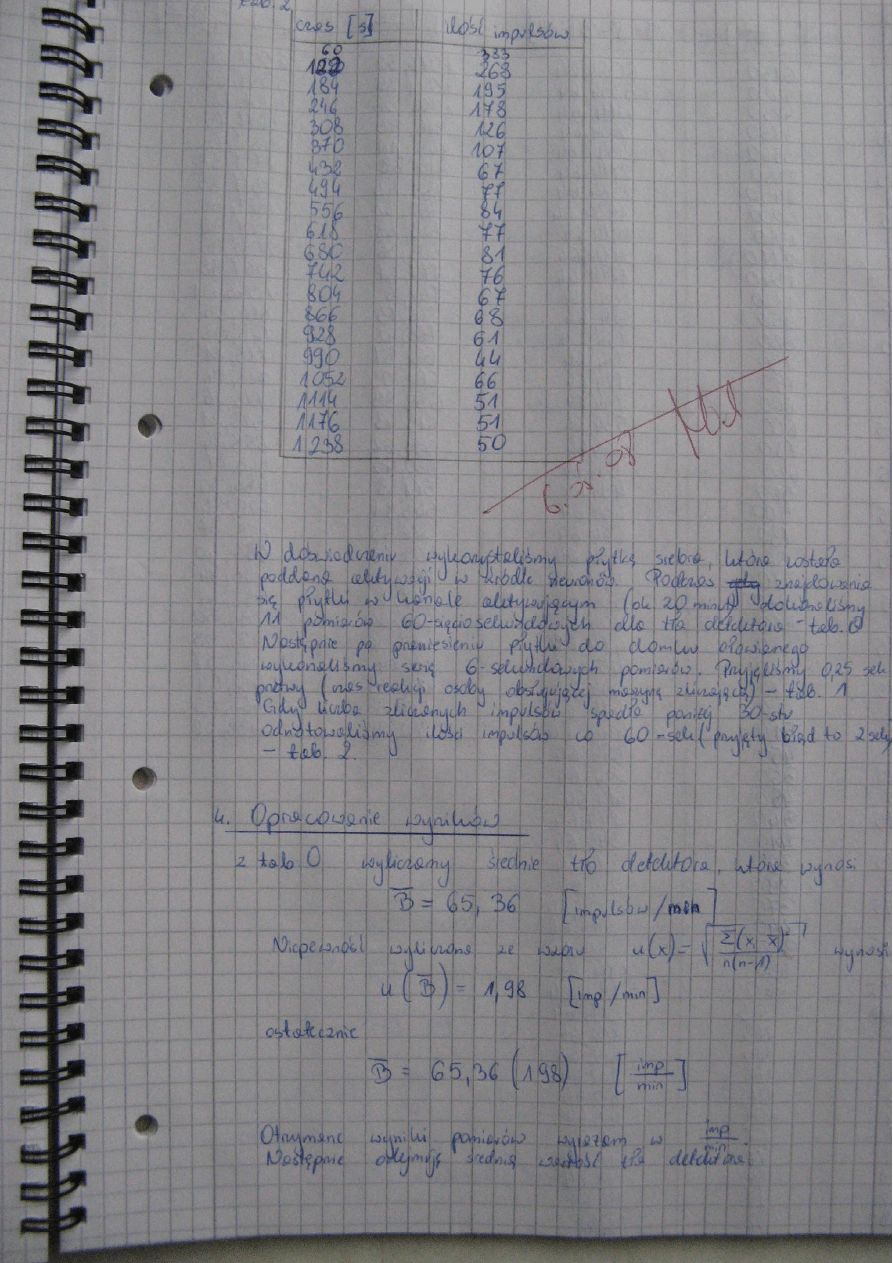 Tab. 2
czas [s] ilość impulsów
60 333
122 268
184 195
246 178
308 126
370 107
432 67
494 77
556 84
618 77
680 81
742 76
804 67
866 68
928 61
990 44
1052 66
1114 51
1176 51
1238 50
6.05.08
W doświadczeniu wykorzystaliśmy płytkę srebra, która została
poddana aktywacji w źródle neutronów. Podczas znajdowania
się płytki w kanale aktywującym (ok 20 minut) dokonaliśmy
11 pomiarów 60-sięciosekundowych dla tła detektora - tab. 0
Następnie po przeniesieniu płytki do domku ołowianego
wykonaliśmy serię 6-sekundowych pomiarów. Przyjęliśmy 0,25 sek
przerwy (czas reakcji osoby obsługującej maszynę zliczającą) - tab. 1
Gdy liczba zliczanych impulsów spadła poniżej 30-stu
odnotowaliśmy ilości impulsów co 60-sek (przyjęty błąd to 2 sek)
- tab. 2.
4. Opracowanie wyników
z tab 0 wyliczamy średnie tło detektora, które wynosi
B̅ = 65,36 [impulsów/min]
Niepewność wyliczona ze wzoru u(x) = √(Σ(xᵢ-x̅)²/n(n-1)) wynosi
u(B̅) = 1,98 [imp/min]
ostatecznie
B̅ = 65,36 (198) [imp/min]
Otrzymane wyniki pomiarów wyrażam w imp/min.
Następnie odejmuję średnią wartość tła detektora.